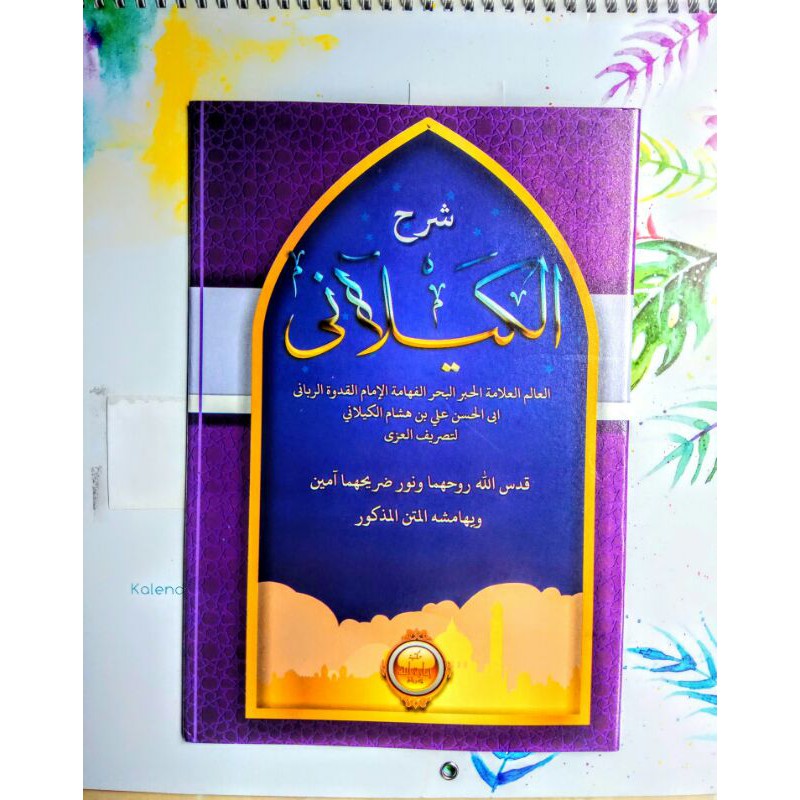 شرح
الكيلانى
العالم العلامة الحبر البحر الفهامة الإمام القدوة الربانى
ابى الحسن علي بن هشام الكيلاني
لتصريف العزى
قدس الله روحهما ونور ضريحهما آمين
وبهامشه المتن المذكور
Kalend